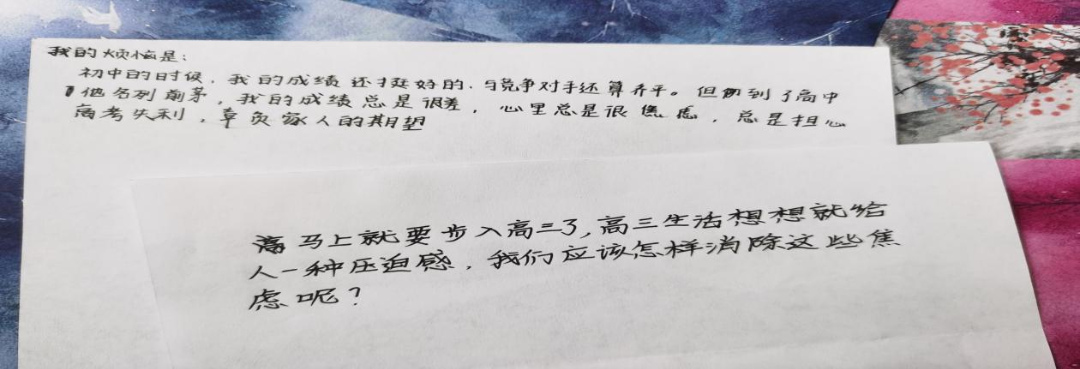 我的烦恼是：
初中的时候，我的成绩还挺好的，与竞争对手还算齐平。但到了高中
他名列前茅，我的成绩总是很差，心里总是很焦虑，总是担心
高考失利，辜负家人的期望
马上就要步入高三了，高三生活想想就给
人一种压迫感，我们应该怎样消除这些焦
虑呢？